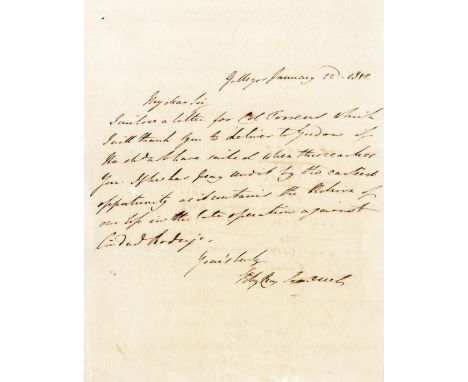 Gallegos January 22d - 1812
My dear Sir
I enclose a letter for Col Torrens which
I will thank you to deliver to Gordon if
He should not have sailed when this reaches
You. If he has pray send it by the earliest
opportunity as it contains the Return of
our loss in the late operation against
Ciudad Rodrigo.
Yours truly
FitzRoy Somerset